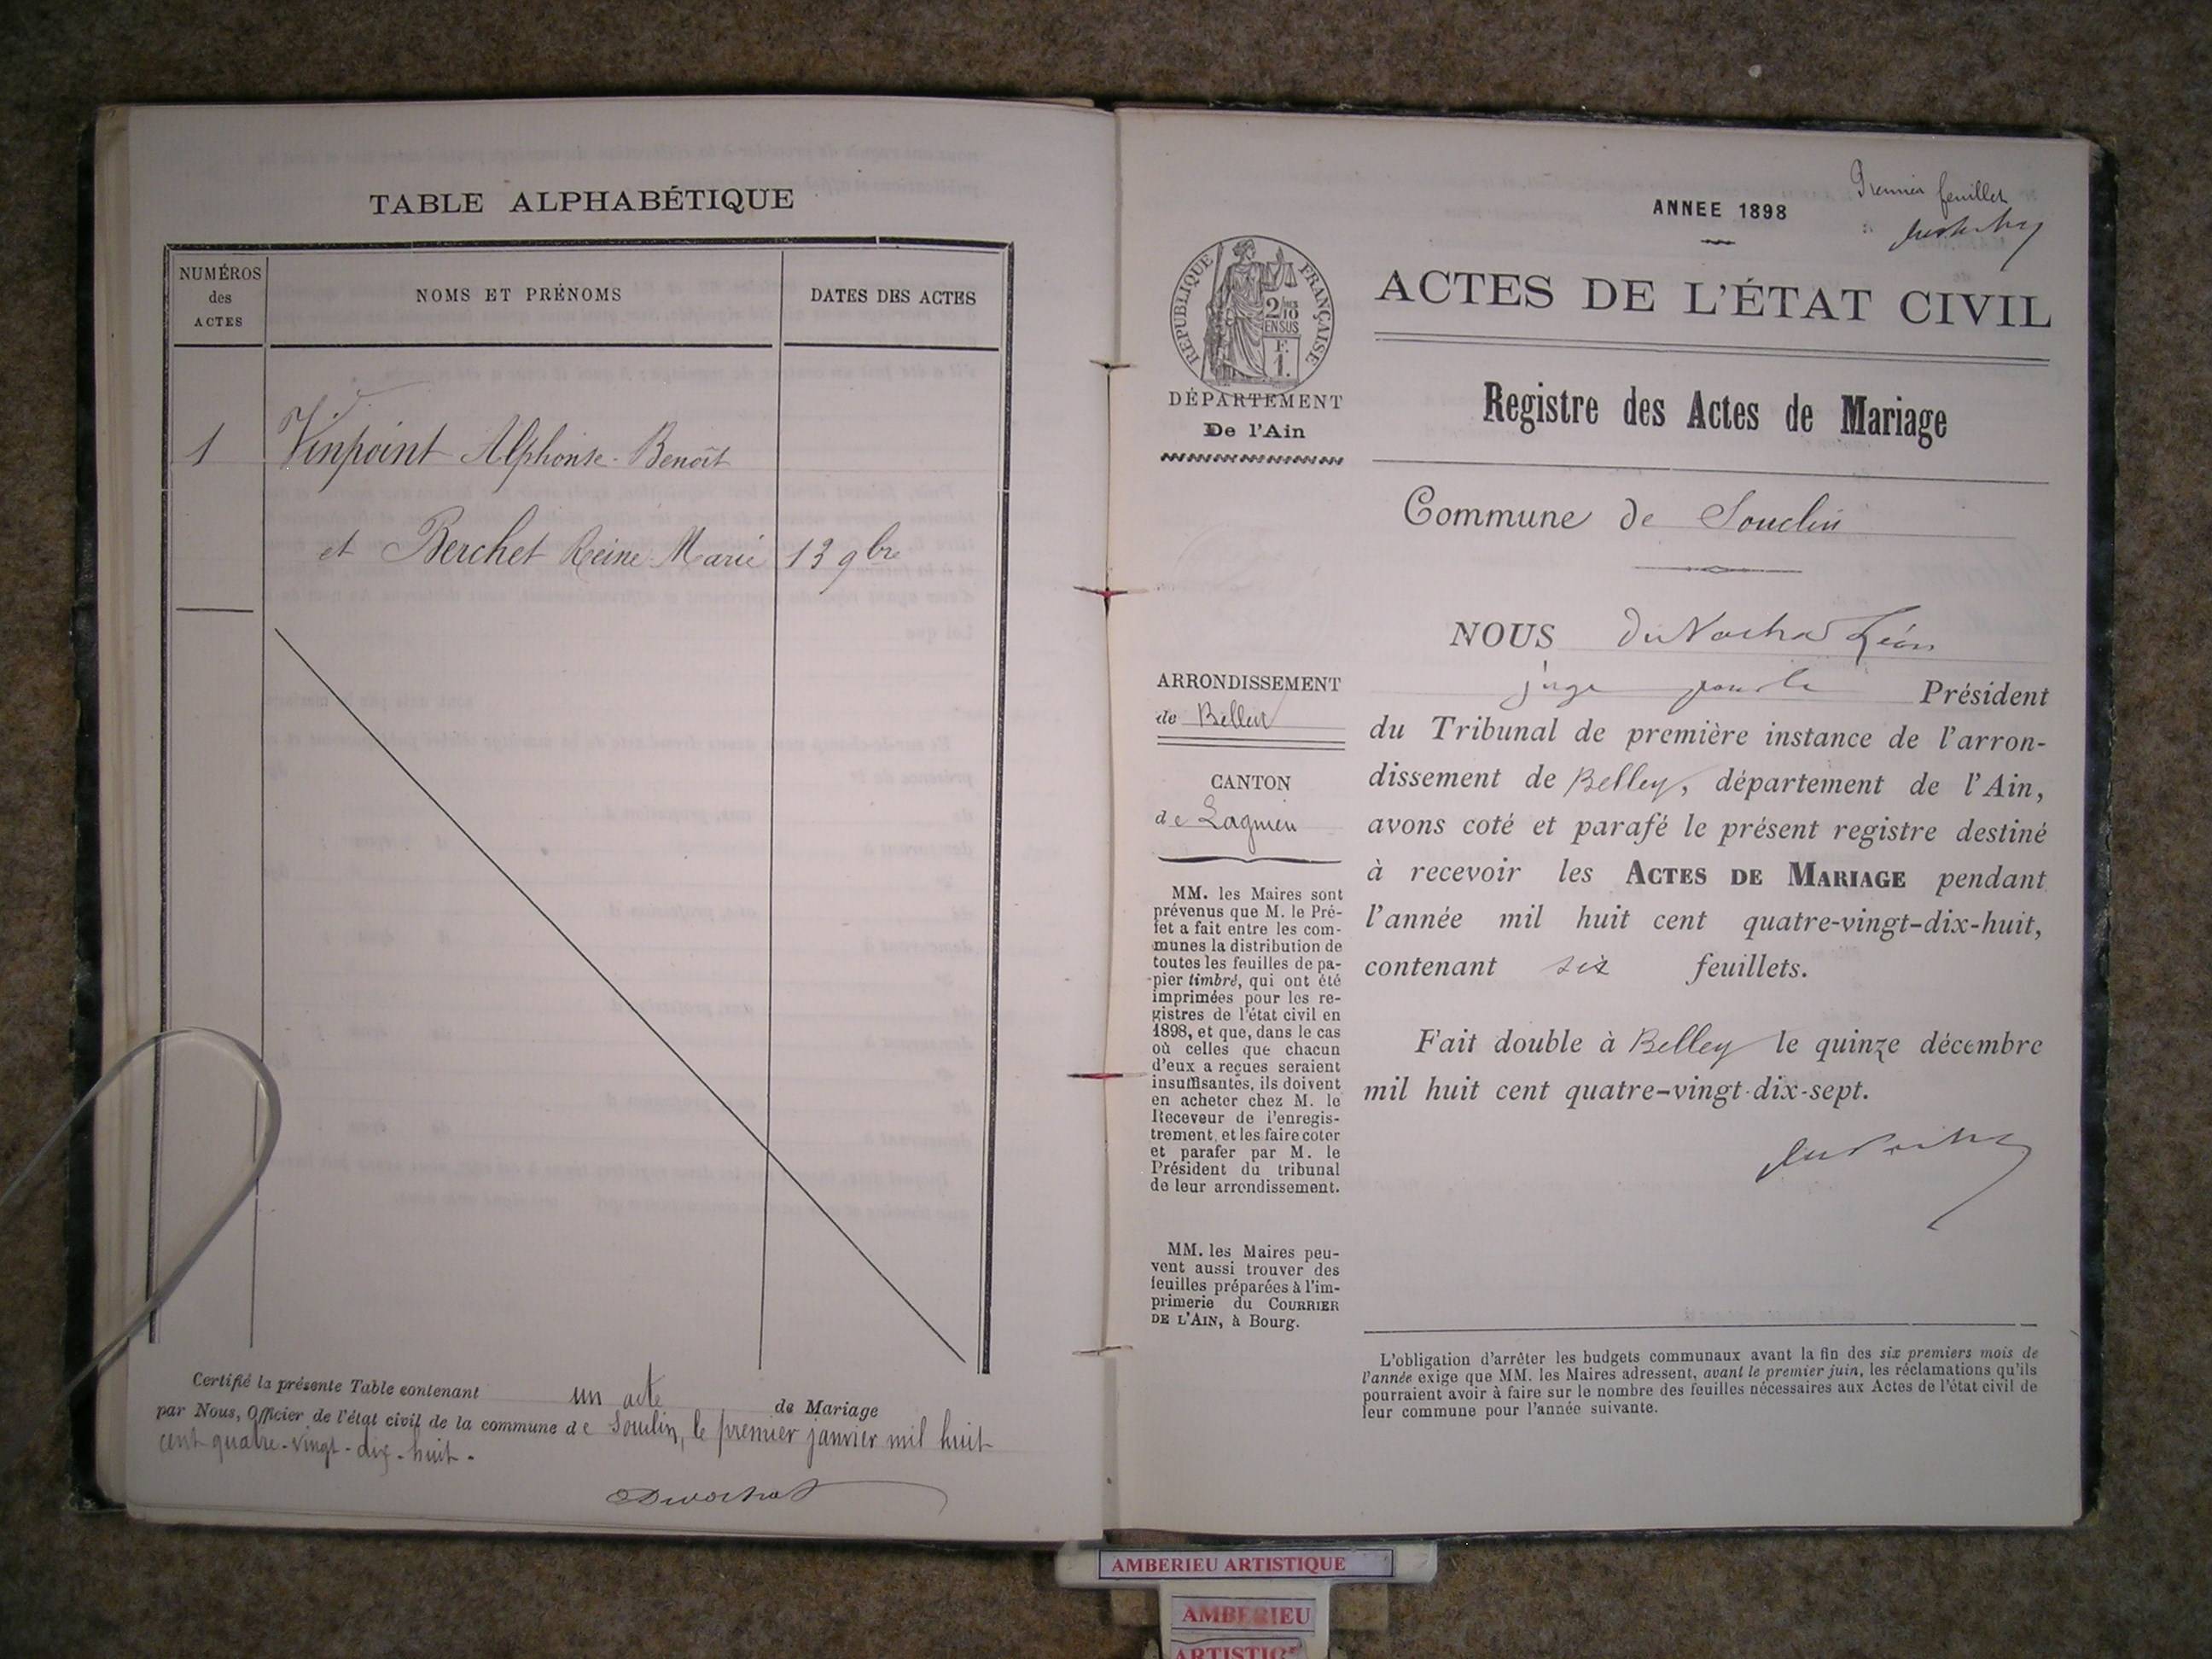 TABLE ALPHABÉTIQUE
NUMÉROS
des
ACTES
NOMS ET PRÉNOMS
DATES DES ACTES
1 Vinpoint Alphonse-Benoît
et Berchet Reine-Marie 13 9bre
Certifié la présente Table contenant un acte de Mariage
par Nous, Officier de l'état civil de la commune de Souclin, le premier janvier mil huit
cent quatre-vingt-dix-huit.
Premier feuillet
ANNEE 1898
RÉPUBLIQUE FRANÇAISE
2/10
EN SUS
F.
1.
ACTES DE L'ÉTAT CIVIL
DÉPARTEMENT
De l'Ain
Registre des Actes de Mariage
Commune de Souclin
ARRONDISSEMENT
de Belley
CANTON
de Lagnieu
MM. les Maires sont
prévenus que M. le Pré-
fet a fait entre les com-
munes la distribution de
toutes les feuilles de pa-
pier timbré, qui ont été
imprimées pour les re-
gistres de l'état civil en
1898, et que, dans le cas
où celles que chacun
d'eux a reçues seraient
insuffisantes, ils doivent
en acheter chez M. le
Receveur de l'enregis-
trement, et les faire coter
et parafer par M. le
Président du tribunal
de leur arrondissement.
MM. les Maires peu-
vent aussi trouver des
feuilles préparées à l'im-
primerie du COURRIER
DE L'AIN, à Bourg.
NOUS Léon
juge pour le Président
du Tribunal de première instance de l'arron-
dissement de Belley, département de l'Ain,
avons coté et parafé le présent registre destiné
à recevoir les ACTES DE MARIAGE pendant
l'année mil huit cent quatre-vingt-dix-huit,
contenant six feuillets.
Fait double à Belley le quinze décembre
mil huit cent quatre-vingt-dix-sept.
L'obligation d'arrêter les budgets communaux avant la fin des six premiers mois de
l'année exige que MM. les Maires adressent, avant le premier juin, les réclamations qu'ils
pourraient avoir à faire sur le nombre des feuilles nécessaires aux Actes de l'état civil de
leur commune pour l'année suivante.
AMBERIEU ARTISTIQUE
AMBERIEU
ARTISTIQUE